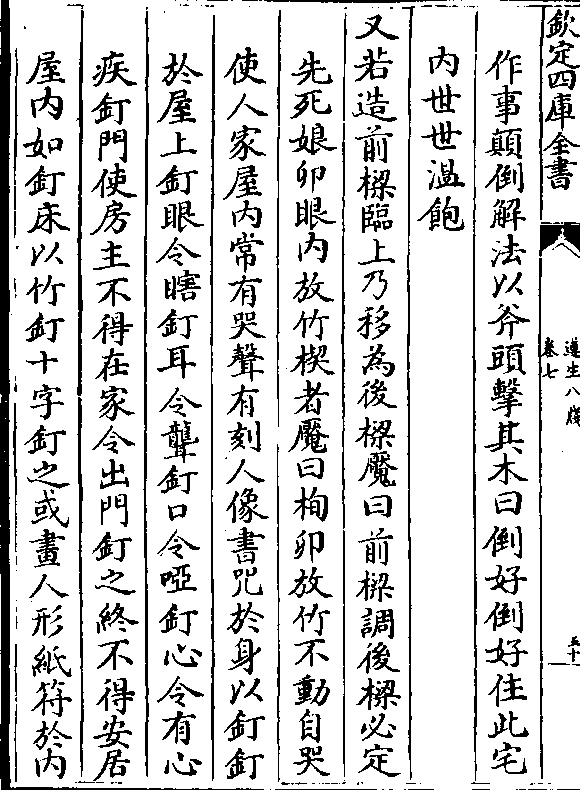 欽定四庫全書
遵生八牋
卷七
五十一
作事顛倒解法以斧頭擊其木曰倒好倒好住此宅
内世世温飽
又若造前樑臨上乃移為後樑魘曰前樑調後樑必定
先死娘卯眼内放竹楔者魘曰栒卯放竹不動自哭
使人家屋内常有哭聲有刻人像書咒於身以釘釘
於屋上釘眼令瞎釘耳令聾釘口令啞釘心令有心
疾釘門使房主不得在家令出門釘之終不得安居
屋内如釘床以竹釘十字釘之或畫人形紙符於内